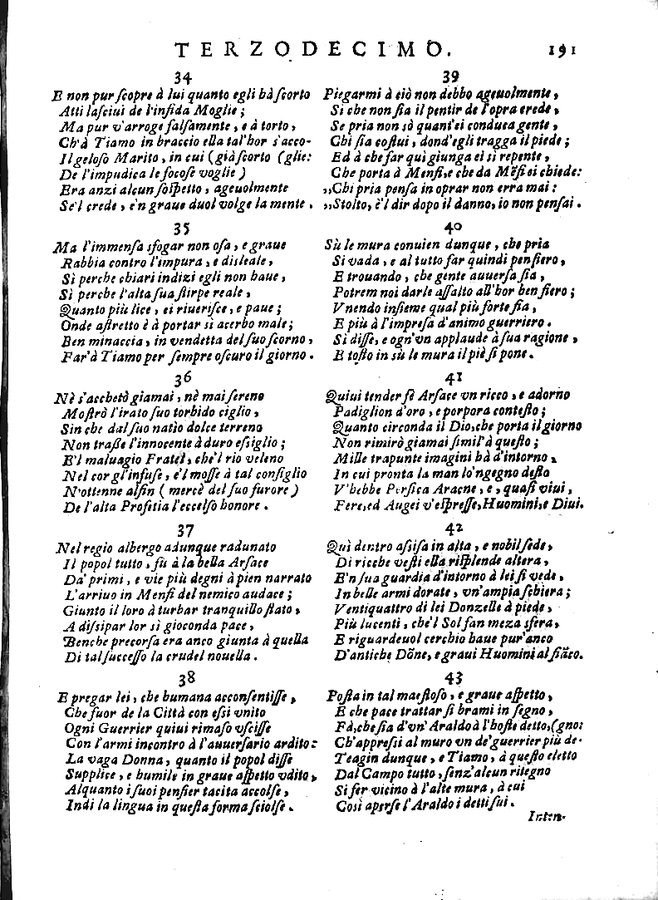 TERZODECIMO. 191
34
E non pur ſcopre à lui quanto egli hà ſcorto
Atti laſciui de l'infida Moglie;
Ma pur v'arroge falſamente, e à torto,
Ch'à Tiamo in braccio ella tal'hor s'acco-
Il geloſo Marito, in cui (già ſcorto (glie:
De l'impudica le focoſe voglie)
Era anzi alcun ſoſpetto, ageuolmente
Se'l crede, e'n graue duol volge la mente.
35
Ma l'immenſa sfogar non oſa, e graue
Rabbia contro l'impura, e disleale,
Sì perche chiari indizi egli non haue,
Sì perche l'alta ſua ſtirpe reale,
Quanto più lice, ei riueriſce, e paue;
Onde aſtretto è à portar sì acerbo male;
Ben minaccia, in vendetta del ſuo ſcorno,
Far'à Tiamo per ſempre oſcuro il giorno.
36
Nè s'acchetò giamai, nè mai ſereno
Moſtrò l'irato ſuo torbido ciglio,
Sin che dal ſuo natìo dolce terreno
Non traſſe l'innocente à duro eſsiglio;
E'l maluagio Fratel, che'l rio veleno
Nel cor gl'infuſe, e'l moſſe à tal conſiglio
N'ottenne alfin (mercè del ſuo furore)
De l'alta Profitia l'eccelſo honore.
37
Nel regio albergo adunque radunato
Il popol tutto, fù à la bella Arſace
Da' primi, e vie più degni à pien narrato
L'arriuo in Menfi del nemico audace;
Giunto il loro à turbar tranquillo ſtato,
A diſsipar lor sì gioconda pace,
Benche precorſa era anco giunta à quella
Di tal ſucceſſo la crudel nouella.
38
E pregar lei, che humana acconſentiſſe,
Che fuor de la Città con eſsi vnito
Ogni Guerrier quiui rimaſo vſciſſe
Con l'armi incontro à l'auuerſario ardito:
La vaga Donna, quanto il popol diſſe
Supplice, e humile in graue aſpetto vdito,
Alquanto i ſuoi penſier tacita accolſe,
Indi la lingua in queſta forma ſciolſe.
39
Piegarmi à ciò non debbo ageuolmente,
Sì che non ſia il pentir de l'opra erede,
Se pria non sò quant'ei conduca gente,
Chi ſia coſtui, dond'egli tragga il piede;
Ed à che far quì giunga ei sì repente,
Che porta à Menfi, e che da Mēfi ei chiede:
,,Chi pria penſa in oprar non erra mai:
,,Stolto, è'l dir dopo il danno, io non penſai.
40
Sù le mura conuien dunque, che pria
Si vada, e al tutto far quindi penſiero,
E trouando, che gente auuerſa ſia,
Potrem noi darle aſſalto all'hor ben fiero;
Vnendo inſieme qual più forte ſia,
E più à l'impreſa d'animo guerriero.
Sì diſſe, e ogn'vn applaude à ſua ragione,
E toſto in sù le mura il piè ſi pone.
41
Quiui tender fè Arſace vn ricco, e adorno
Padiglion d'oro, e porpora conteſto;
Quanto circonda il Dio, che porta il giorno
Non rimirò giamai ſimil'à queſto;
Mille trapunte imagini hà d'intorno,
In cui pronta la man lo'ngegno deſto
V'hebbe Perſica Aracne, e, quaſi viui,
Fere, ed Augei v'eſpreſſe, Huomini, e Diui.
42
Quì dentro aſsiſa in alta, e nobil ſede,
Di ricche veſti ella riſplende altera,
E'n ſua guardia d'intorno à lei ſi vede,
In belle armi dorate, vn'ampia ſchiera;
Ventiquattro di lei Donzelle à piede,
Più lucenti, che'l Sol ſan meza ſfera,
E riguardeuol cerchio haue pur'anco
D'antiche Dōne, e graui Huomini al fiāco.
43
Poſta in tal maeſtoſo, e graue aſpetto,
E che pace trattar ſi brami in ſegno,
Fà, che ſia d'vn' Araldo à l'hoſte detto, (gno:
Ch'appreſſi al muro vn de' guerrier più de-
Teagin dunque, e Tiamo, à queſto eletto
Dal Campo tutto, ſenz'alcun ritegno
Si fer vicino à l'alte mura, à cui
Così aperſe l'Araldo i detti ſui.
Inten-